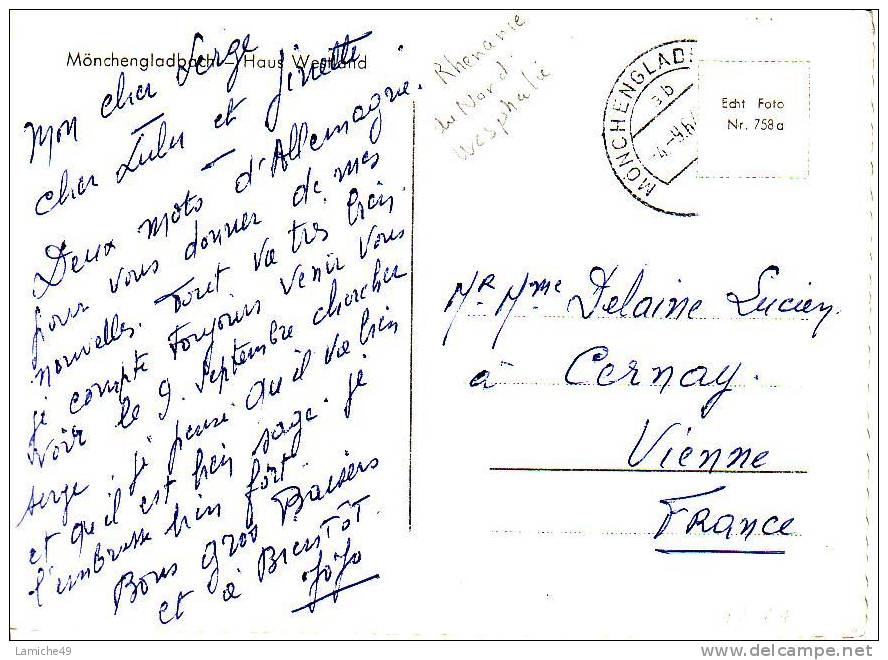 Mönchengladbach – Haus Westland
Mon cher Serge
Cher Lulu et Ginette
Deux mots d'Allemagne.
pour vous donner de mes
nouvelles. Tout va très bien.
je compte toujours venir vous
voir le 9. Septembre chercher
Serge, je pense qu'il va bien
et qu'il est bien sage. je
l'embrasse bien fort.
Bons gros Baisers
et à Bientôt.
Jojo
Rhenanie
du Nord
Wesphalie
MÖNCHENGLAD
Echt Foto
Nr. 758a
Mr. Mme Delaine Lucien
à Cernay.
Vienne
France
Lamiche49
www.delcampe.net